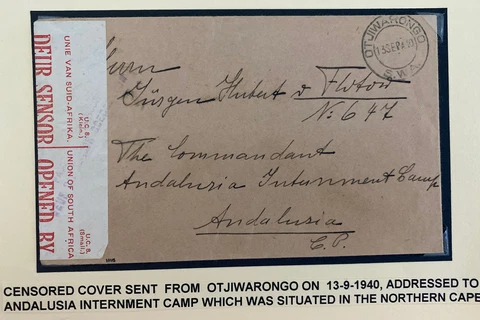 UNIE VAN SUID-AFRIKA. UNION OF SOUTH AFRICA
U.C.S.
(Klein.)
U.C.S.
(Small.)
DEUR SENSOR OPENED BY
OTJIWARONGO
13 SEP 40
S.W.A.
Herrn
Jürgen Hubert v Flotow
No 647
The Commandant
Andalusia Internment Camp
Andalusia
C.P.
CENSORED COVER SENT FROM OTJIWARONGO ON 13-9-1940, ADDRESSED TO
ANDALUSIA INTERNMENT CAMP WHICH WAS SITUATED IN THE NORTHERN CAPE